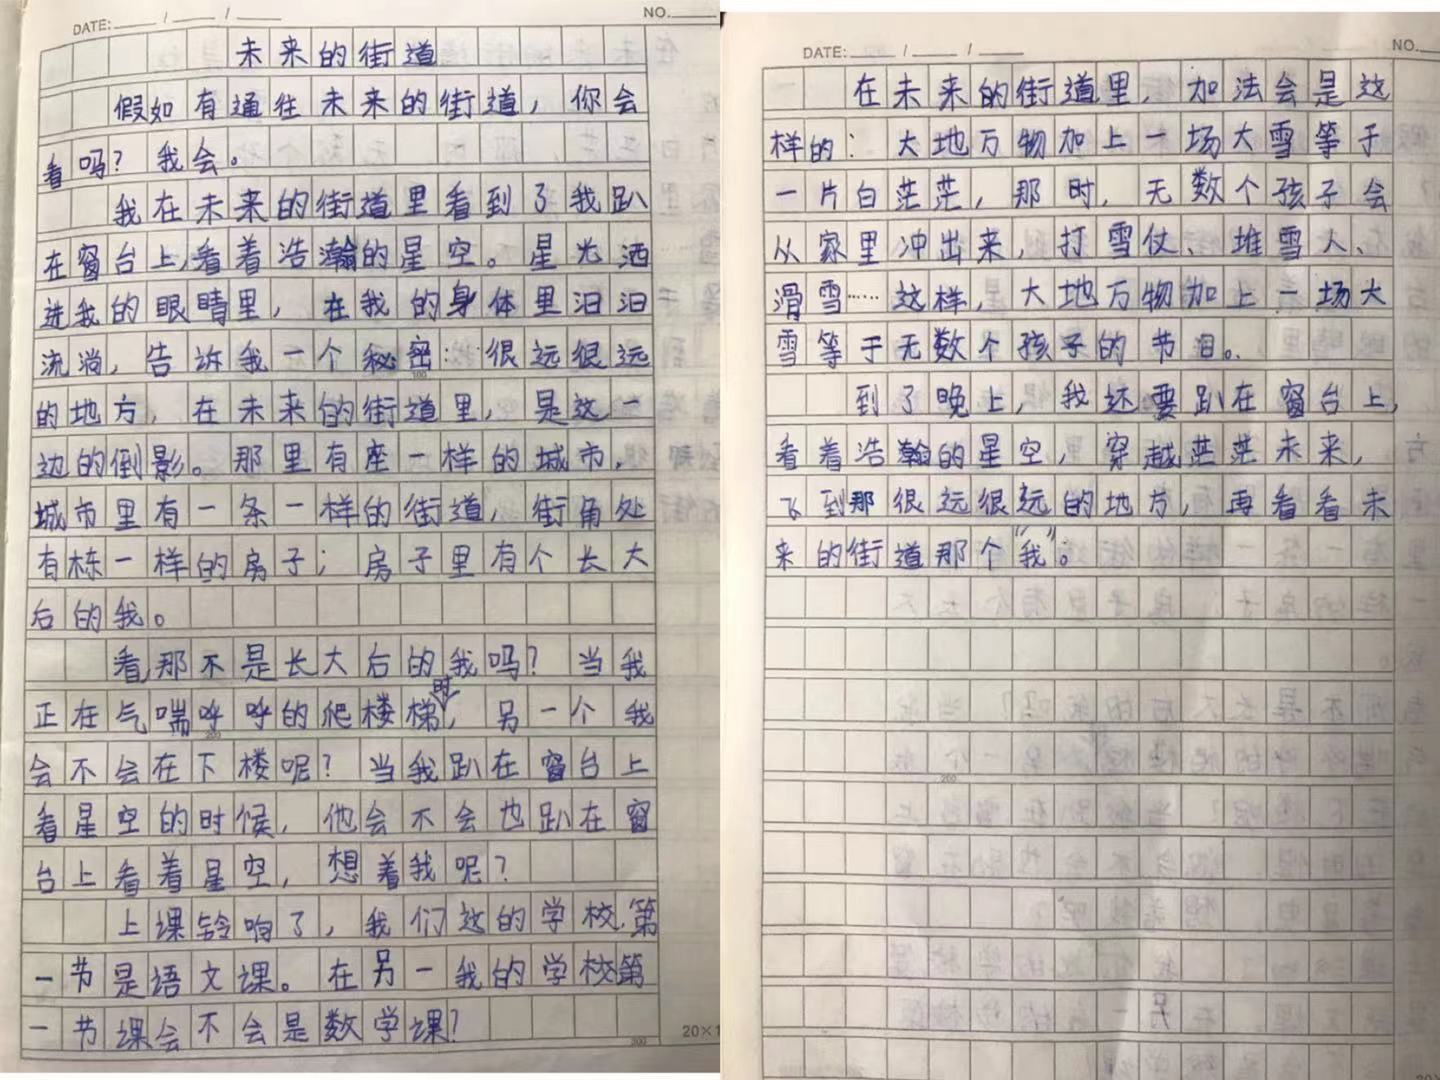 DATE: / /
NO.
未来的街道
假如有通往未来的街道，你会
看吗？我会。
我在未来的街道里看到了我趴
在窗台上,看着浩瀚的星空。星光洒
进我的眼睛里，在我的身体里汩汩
流淌，告诉我一个秘密：很远很远
的地方，在未来的街道里，是这一
边的倒影。那里有座一样的城市，
城市里有一条一样的街道，街角处
有栋一样的房子；房子里有个长大
后的我。
看,那不是长大后的我吗？当我
正在气喘呼呼的爬楼梯时，另一个我
会不会在下楼呢？当我趴在窗台上
看星空的时候，他会不会也趴在窗
台上看着星空，想着我呢？
上课铃响了，我们这的学校,第
一节是语文课。在另一我的学校第
一节课会不会是数学课？
20×1
DATE: / /
NO.
在未来的街道里，加法会是这
样的：大地万物加上一场大雪等于
一片白茫茫，那时，无数个孩子会
从家里冲出来，打雪仗、堆雪人、
滑雪……这样，大地万物加上一场大
雪等于无数个孩子的节日。
到了晚上，我还要趴在窗台上，
看着浩瀚的星空，穿越茫茫未来，
飞到那很远很远的地方，再看看未
来的街道那个“我”。